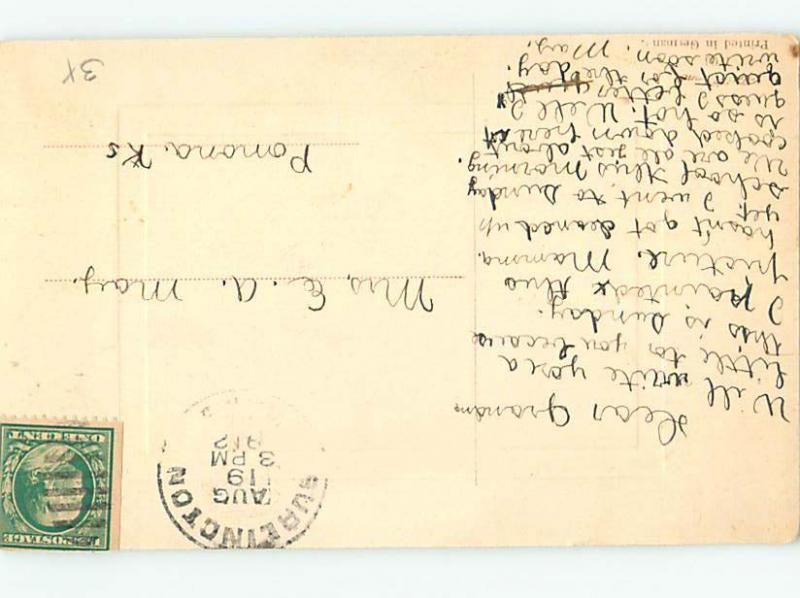 Dear Grandma
Will write you a
little to you because
this is Sunday.
I painted this
picture. Mamma
hasn't got cleaned up
yet. I went to Sunday
school this morning.
We are all jest about
cooked down here it
is so hot. Well I
guess I better
quit for the day.
write soon. May.
Printed in German
Mrs. E. A. May.
Pomona Ks
BURLINGTON
AUG
19
3 PM
912
U.S. POSTAGE
ONE CENT
3X